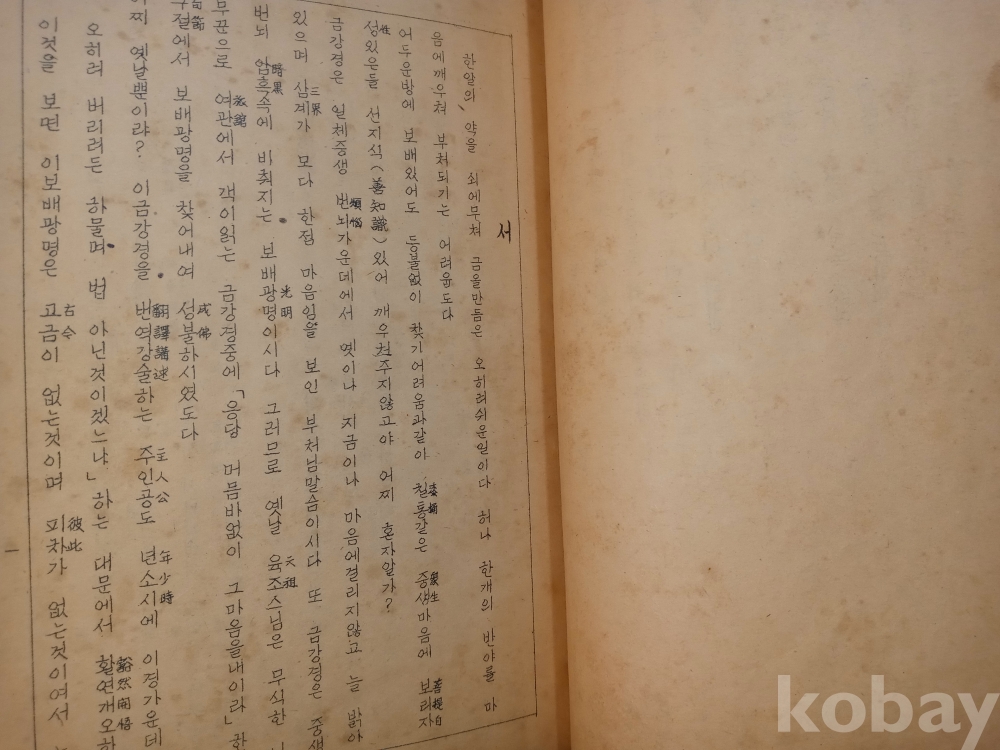 서
한알의 약을 쇠에무쳐 금을만듬은 오히려쉬운일이다 허나 한개의 반야를 마
음에깨우쳐 부처되기는 어려웁도다
어두운방에 보배있어도 등불없이 찾기어려움과같아 칠통같은 중생마음에 보리자
성있은들 선지식(善知識)있어 깨우쳐주지않고야 어찌 혼자알가?
금강경은 일체중생 번뇌가운데에서 옛이나 지금이나 마음에걸리지않고 늘 밝아
있으며 삼계가 모다 한집 마음임을 보인 부처님말슴이시다 또 금강경은 중생
번뇌 암흑속에 비춰지는 보배광명이시다 그러므로 옛날 육조스님은 무식한
무꾼으로 여관에서 객이읽는 금강경중에「응당 머믐바없이 그마음을내이라」한
구절에서 보배광명을 찾어내여 성불하시였도다
어찌 옛날뿐이랴? 이금강경을 번역강술하는 주인공도 년소시에 이경가운데
오히려 버리려든 하물며 법 아닌것이겠느냐」하는 대문에서 활연개오하
이것을 보면 이보배광명은 고금이 없는것이며 피차가 없는것이여서
性
菩提自
衆生
漆桶
煩惱
三界
暗黑
光明
六祖
旅館
句節
成佛
翻譯講述
主人公
年少時
豁然開悟
古今
彼此
一
kobay